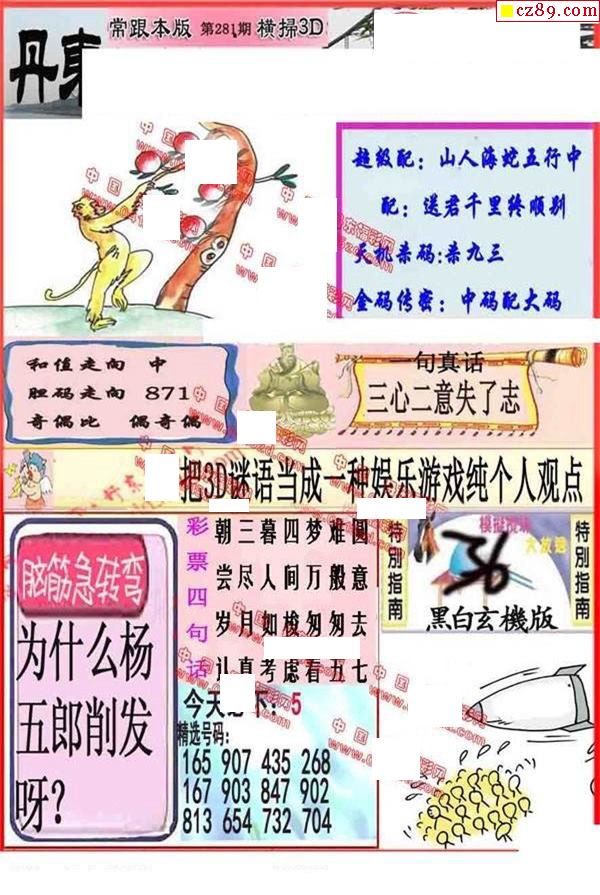 cz89.com
常跟本版 第281期 横掃3D
丹東
超级配：山人海蛇五行中
配：送君千里终顺别
天机杀码:杀九三
金码传密：中码配大码
和值走向 中
胆码走向 871
奇偶比 偶奇偶
一句真话
三心二意失了志
把3D谜语当成一种娱乐游戏纯个人观点
脑筋急转弯
为什么杨
五郎削发
呀？
彩票四句话
朝三暮四梦难圆
尝尽人间万般意
岁月如梭匆匆去
认真考虑看五七
今天 下：5
精选号码：
165 907 435 268
167 903 847 902
813 654 732 704
特别指南
特别指南
36
黑白玄機版